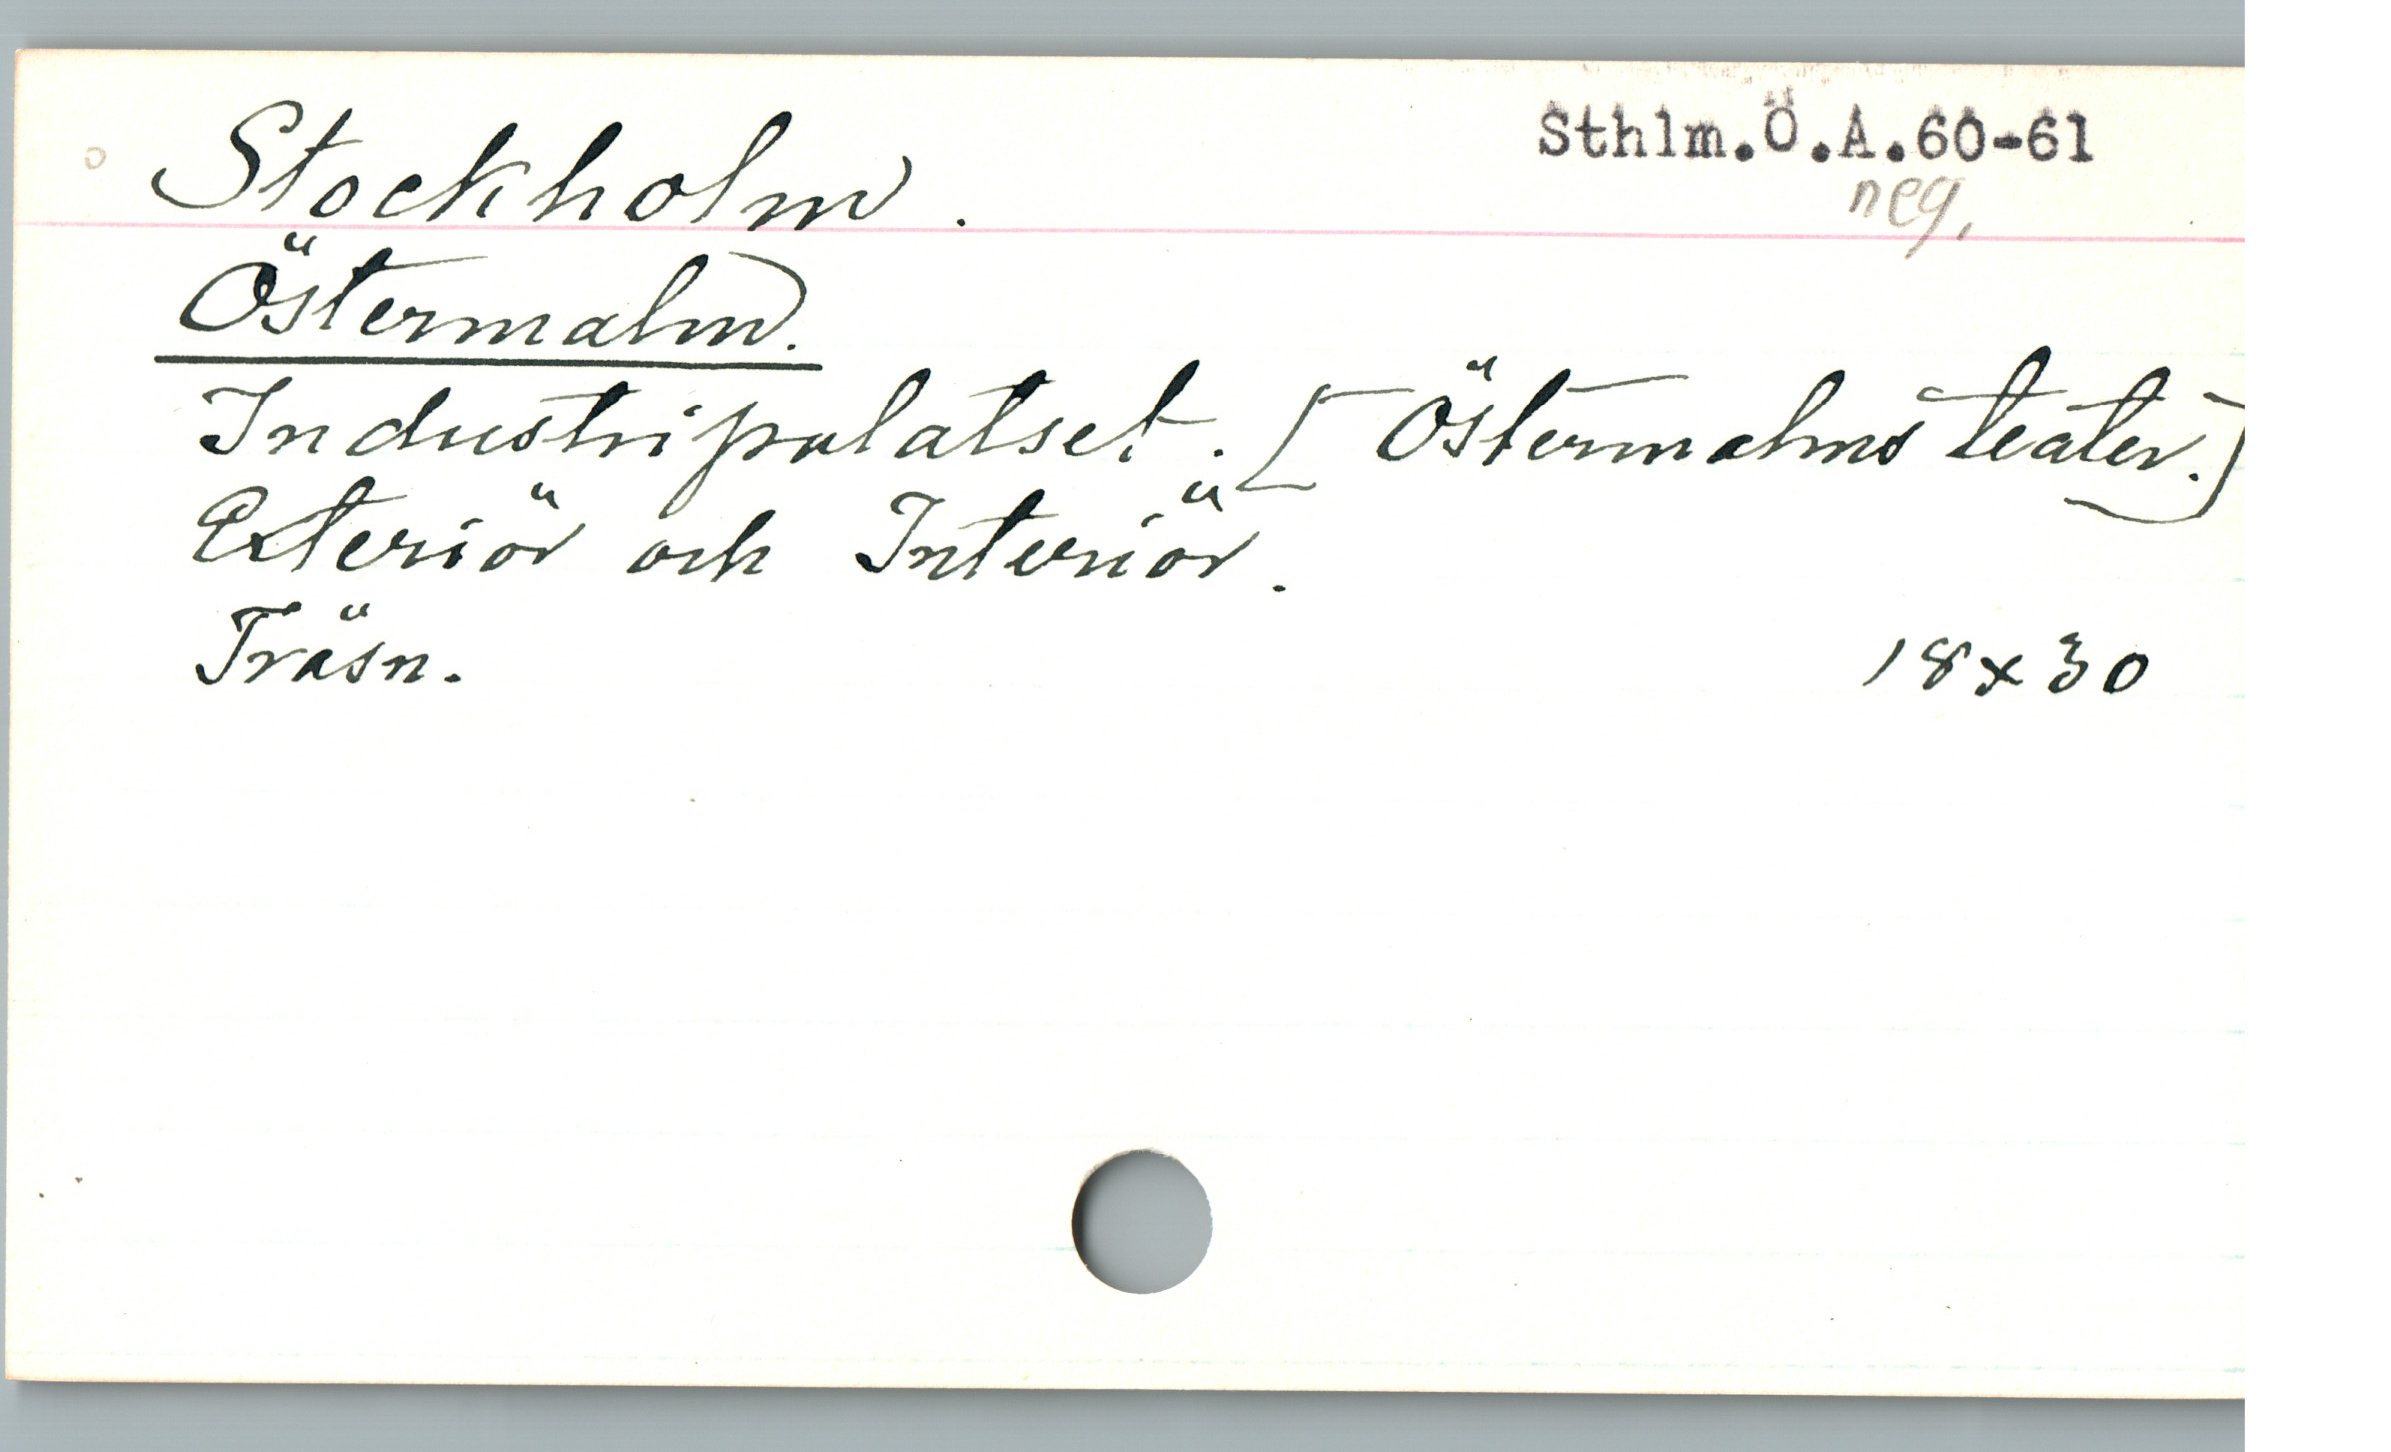 Stockholm.
Sthlm.Ö.A.60-61
neg.
Östermalm.
Industripalatset. [Östermalms teater.]
Exteriör och Interiör.
Träsn.
18x30